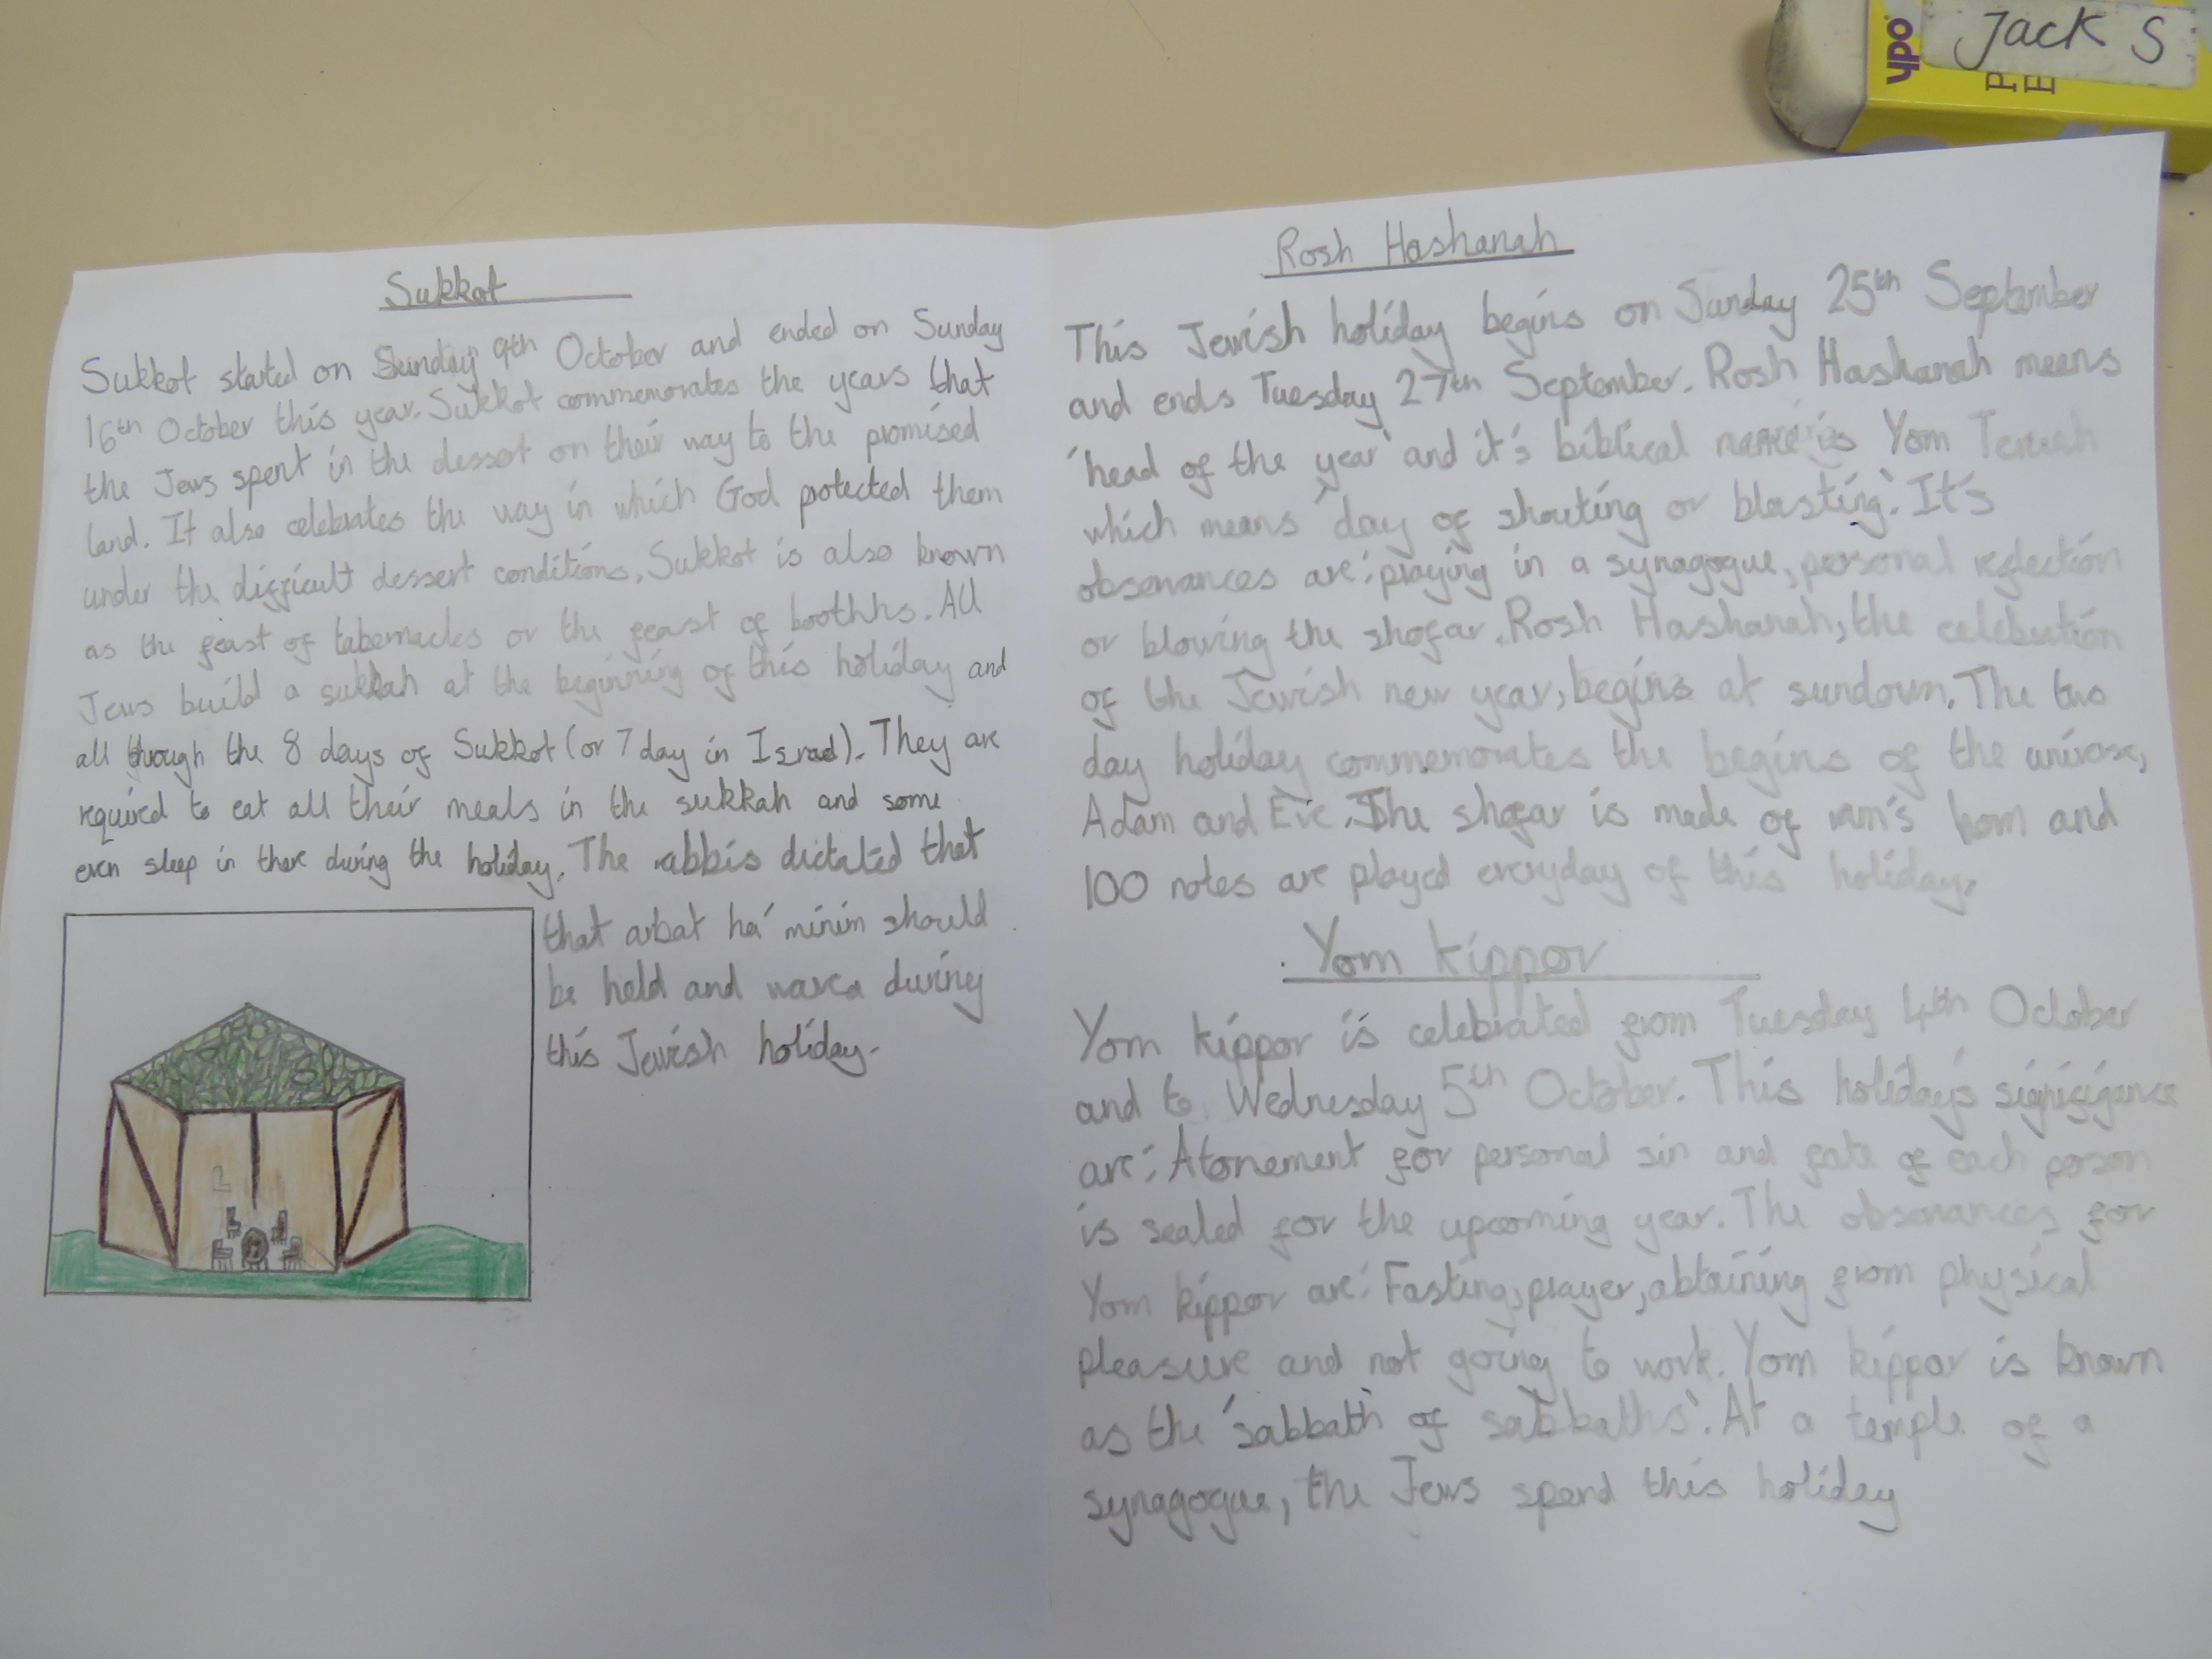 ypo
Jack S
P
E
Sukkot
Sukkot started on Sunday 9th October and ended on Sunday
16th October this year. Sukkot commemorates the years that
the Jews spent in the dessert on their way to the promised
land. It also celebrates the way in which God protected them
under the difficult dessert conditions. Sukkot is also known
as the feast of tabernacles or the feast of boothhs. All
Jews build a sukkah at the beginning of this holiday and
all through the 8 days of Sukkot (or 7 day in Israel). They are
required to eat all their meals in the sukkah and some
even sleep in there during the holiday. The rabbis dictated that
that arbat ha' minim should
be held and waved during
this Jewish holiday.
Rosh Hashanah
This Jewish holiday begins on Sunday 25th September
and ends Tuesday 27th September. Rosh Hashanah means
'head of the year' and it's biblical name is Yom Teruah
which means 'day of shouting or blasting'. It's
obsenances are: praying in a synagogue, personal reflection
or blowing the shofar. Rosh Hashanah, the celebration
of the Jewish new year, begins at sundown. The two
day holiday commemorates the begins of the universe,
Adam and Eve. The shofar is made of ram's horn and
100 notes are played everyday of this holiday.
Yom Kippor
Yom Kippor is celebrated from Tuesday 4th October
and to Wednesday 5th October. This holiday's signifigance
are: Atonement for personal sin and fate of each person
is sealed for the upcoming year. The obsenances for
Yom Kippor are: Fasting, prayer, abtaining from physical
pleasure and not going to work. Yom Kippor is known
as the 'sabbath of sabbaths'. At a temple of a
synagogue, the Jews spend this holiday